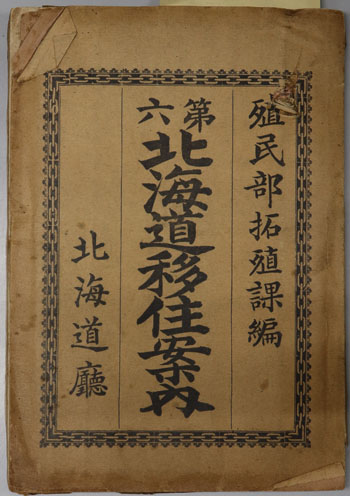 殖民部拓殖課編
第六
北海道移住案内
北海道廳